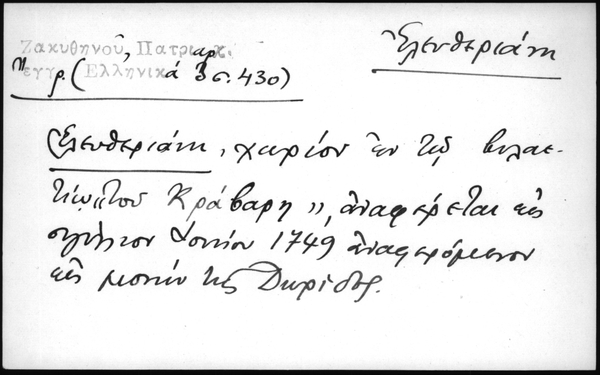 Ζακυθηνοῦ, Πατριαρχ.
ἔγγρ. (Ἑλληνικά 3 σ. 430)
Ἐλευθεριάνη
Ἐλευθεριάνη, χωρίον ἐν τῷ βιλαε-
τίῳ "τοῦ Κράβαρη", ἀναφέρεται εἰς
σιγίλλιον Ἰουνίου 1749 ἀναφερόμενον
εἰς μονήν τῆς Δωρίδος.